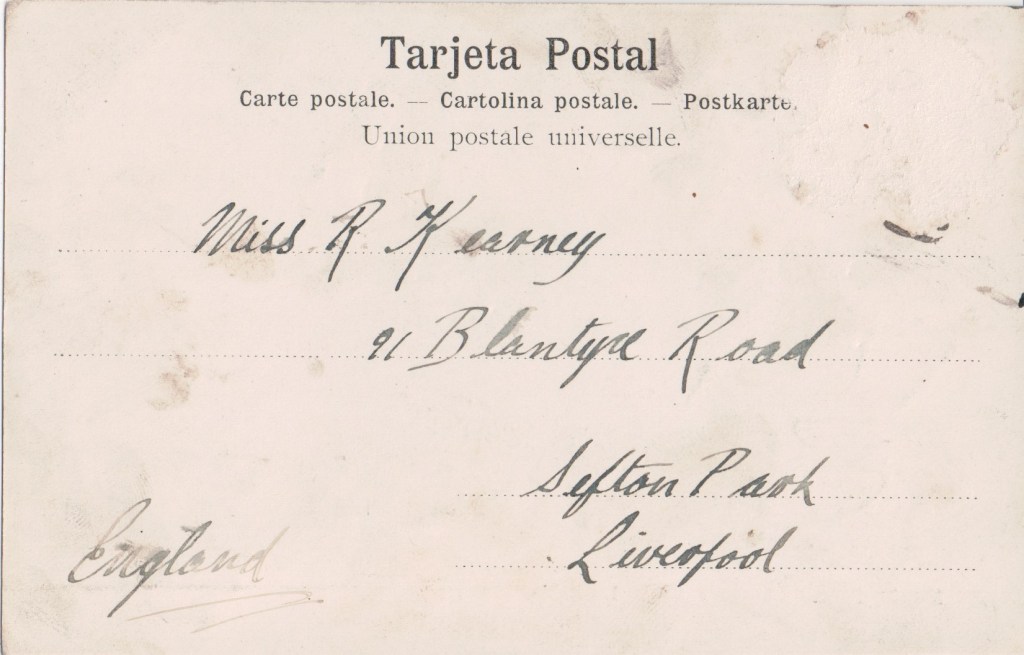 Tarjeta Postal
Carte postale. — Cartolina postale. — Postkarte.
Union postale universelle.
Miss R Kearney
91 Blantyre Road
Sefton Park
Liverpool
England